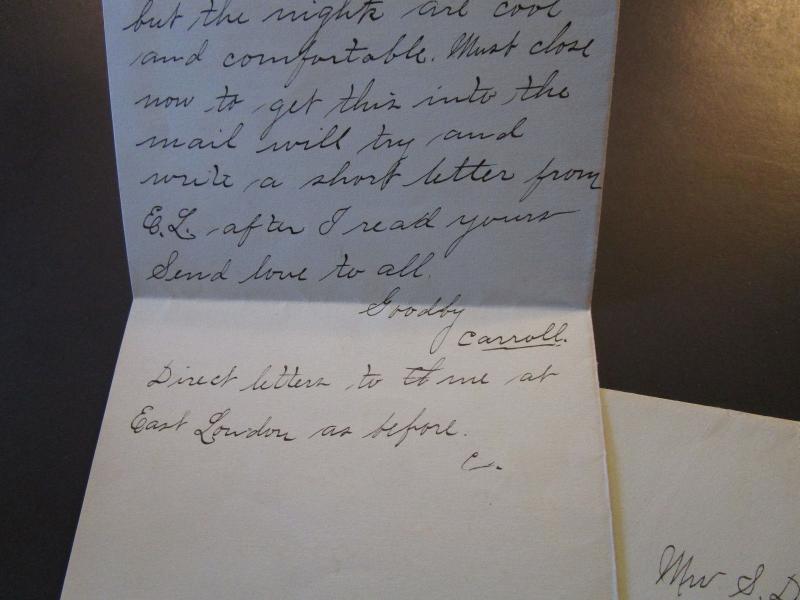 but the nights are cool
and comfortable. Must close
now to get this into the
mail will try and
write a short letter from
E.L. after I read yours
Send love to all.
Goodby
Carroll.
Direct letters to me at
East London as before.
C.
Mrs S. D